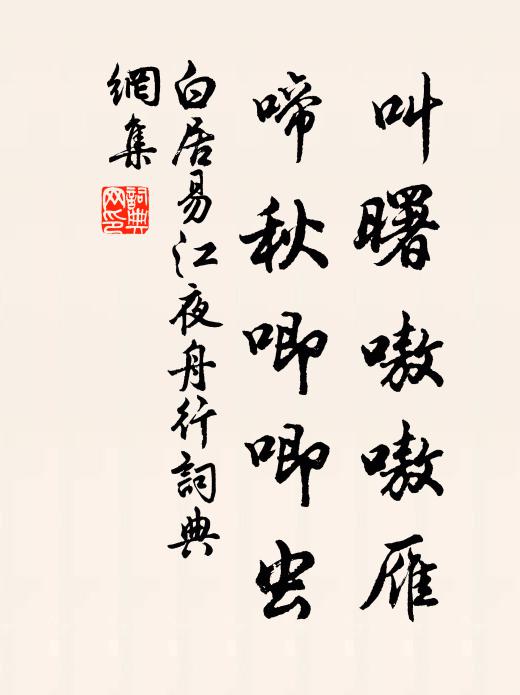 叫曙嗷嗷雁
啼秋唧唧虫
白居易江夜舟行詞典
網集
詞典
网印